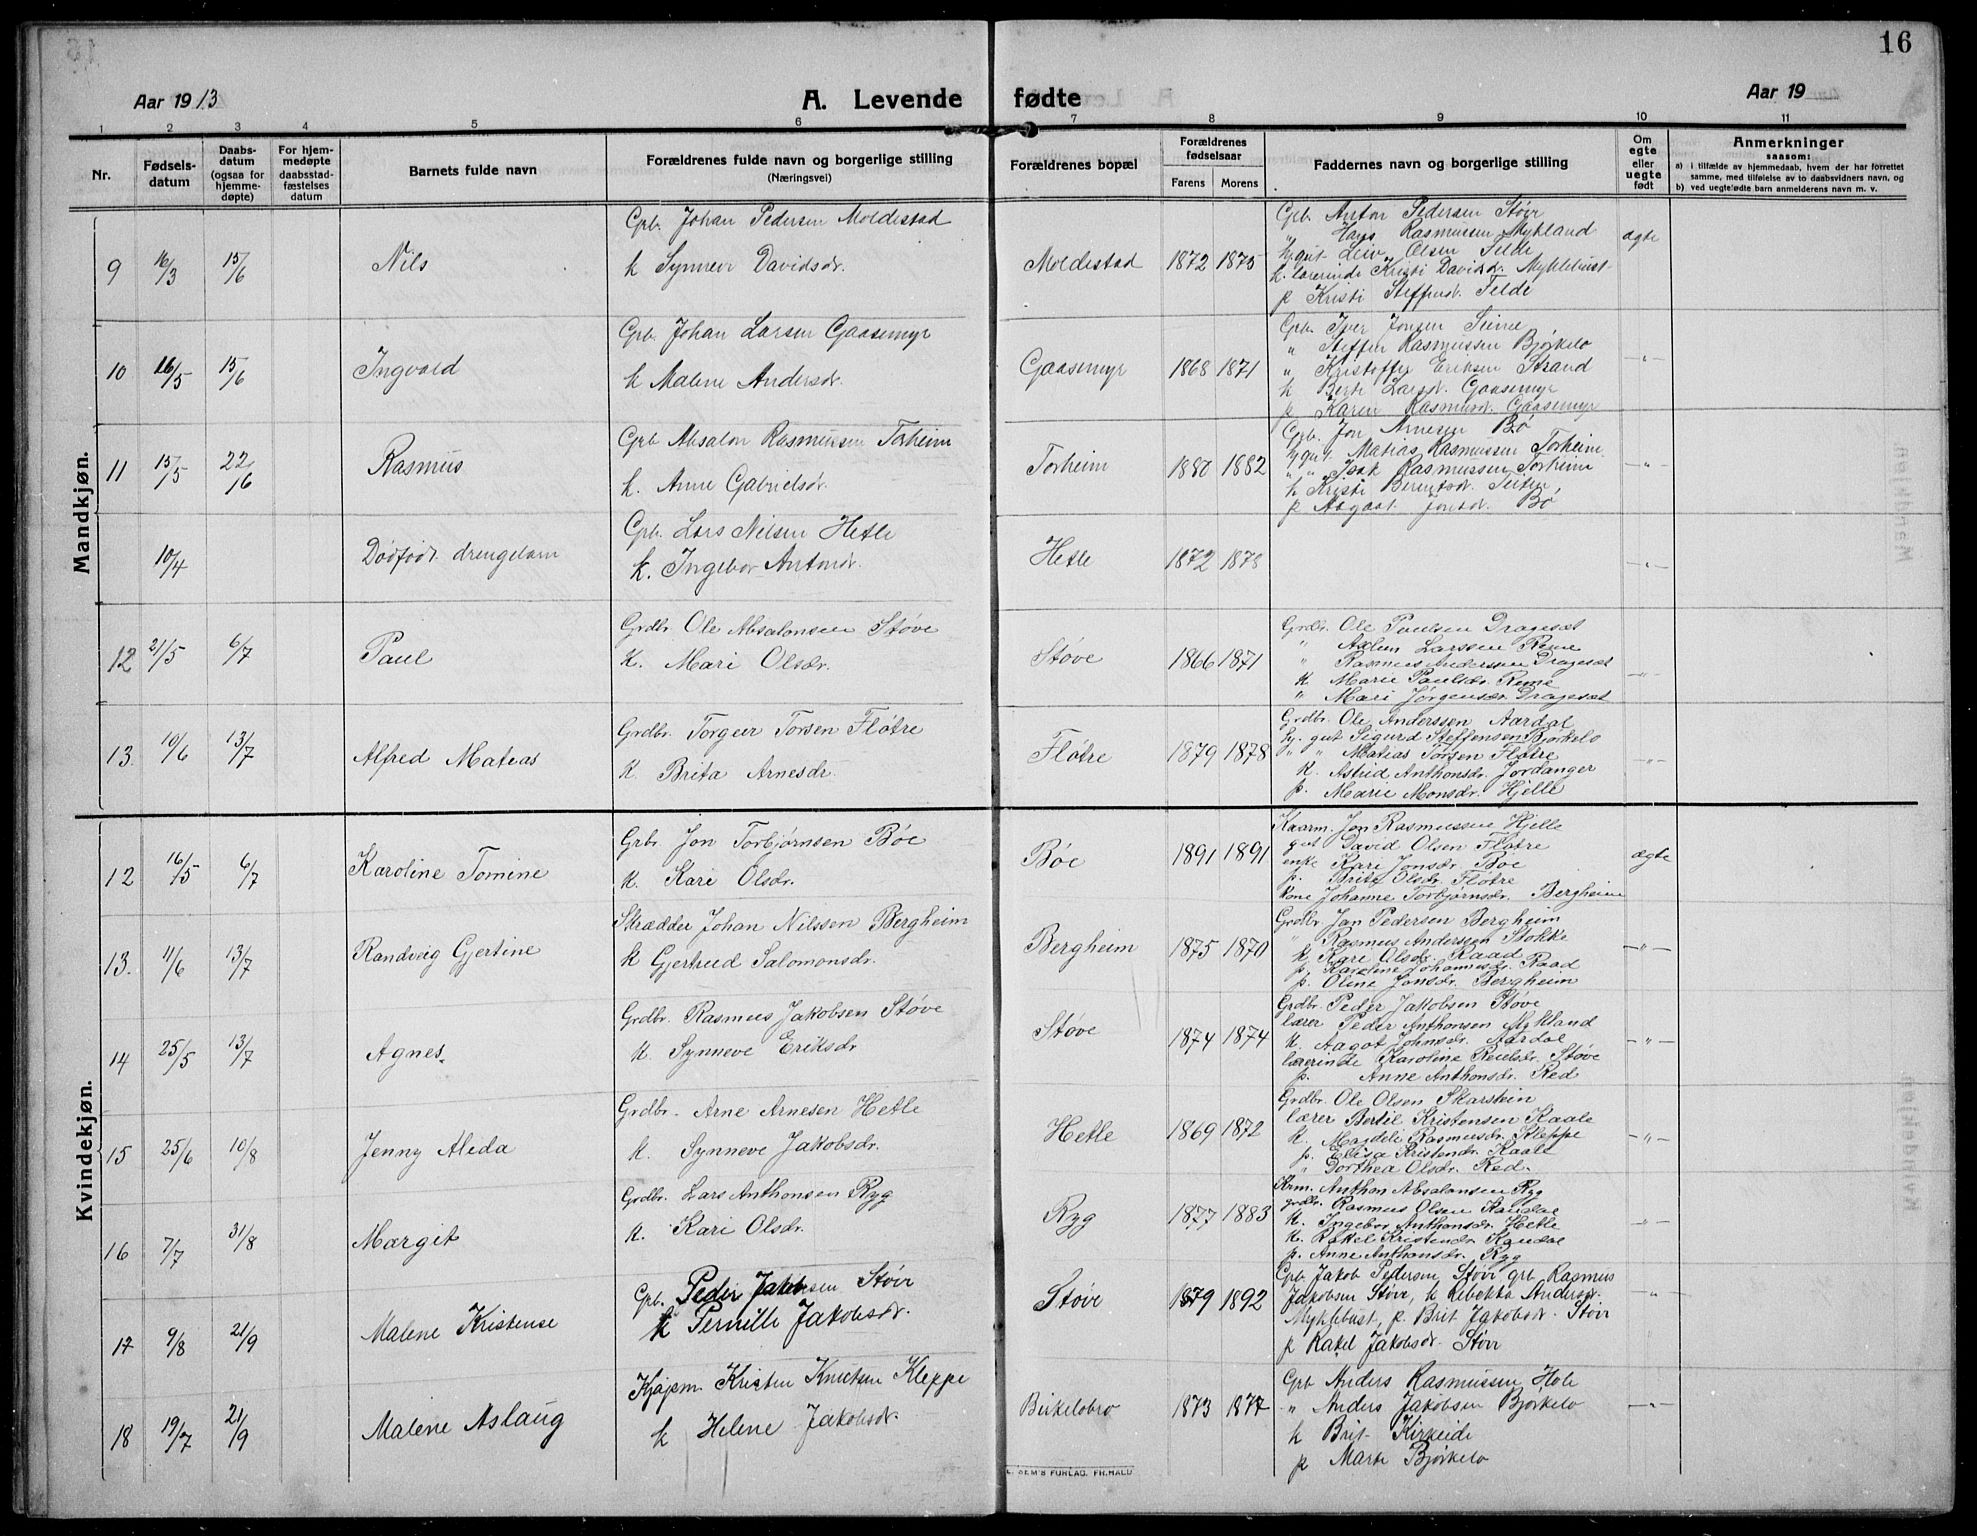 16
Aar 1913
A. Levende fødte
Aar 19
1 2 3 4 5 6 7 8 9 10 11
Nr.
Fødselsdatum
Daabsdatum (ogsaa for hjemmedøpte)
For hjemmedøpte daabsstadfæstelses datum
Barnets fulde navn
Forældrenes fulde navn og borgerlige stilling
(Næringsvei)
Forældrenes bopæl
Forældrenes fødselsaar
Farens Morens
Faddernes navn og borgerlige stilling
Om egte eller uegte født
Anmerkninger
saasom:
a) i tilfælde av hjemmedaab, hvem der har forrettet samme, med tilføielse av to daabsvidners navn, og
b) ved uegtefødte barn anmelderens navn m. v.
Mandkjøn.
9 16/3 15/6 Nils
Grb. Johan Pedersen Moldestad
k Synneve Davidsdr.
Moldestad 1872 1875
Grb. Anton Pedersen Støve
" Hans Rasmussen Mykland
Leiv Olsen Felde
k. lærerinde Kristi Davidsdr Myklebust
p Kristi Steffensd. Felde
ægte
10 16/5 15/6 Ingvald
Grb. Johan Larsen Gaasemyr
k Malene Andersdr.
Gaasemyr 1868 1871
Grb. Iver Jonsen Seime
" Steffen Rasmussen Bjørkelo
" Kristoffer Eriksen Strand
k Berte Larsd. Gaasemyr
p Karen Rasmusd. Gaasemyr
-"-
11 15/5 22/6 Rasmus
Grb Absalon Rasmussen Torheim
k. Anne Gabrielsdr.
Torheim 1880 1882
Grb. Jon Arnesen Bø
Matias Rasmussen Torheim
" " Isak Rasmussen Torheim
k Kristi Berentsdr
p Aagaat Jonsd. Bø
-"-
10/4 Dødfødt drengebarn
Grb. Lars Nilsen Hetle
k. Ingebor Antonsdr.
Hetle 1872 1878
-"-
12 21/5 6/7 Paul
Grdbr. Ole Absalonsen Støve
K. Mari Olsdr.
Støve 1866 1871
Grdbr. Ole Paulsen Dragesæt
" Larssen Reme
" Rasmus Anderssen Dragesæt
K. Marie Paulsdr. Reme
" Mari Jørgensdr. Dragesæt
-"-
13. 10/6 13/7 Alfred Mateas
Grdbr. Torgeir Torsen Fløtre
K Brita Arnesdr.
Fløtre 1879 1878
Grdbr. Ole Anderssen Aardal
gut Sigurd Steffensen Bjørkelo
" " Matias Torsen Fløtre
K. Astrid Anthonsdr. Jordanger
p. Marie Monsdr. Hjelle
-"-
Kvindekjøn.
12 16/5 6/7 Karoline Tomine
Grbr Jon Torbjørnsen Bøe
K. Kari Olsdr.
Bøe 1891 1891
Kaarm. Jon Rasmussen Hjelle
gut David Olsen Fløtre
enke Kari Jonsdr. Bøe
p. Brite Olsdr. Fløtre
kone Johanne Torbjørnsdr. Bergheim
ægte
13. 11/6 13/7 Randveig Gjertine
Skrædder Johan Nilssen Bergheim
K Gjertrud Salomonsdr.
Bergheim 1875 1870
Grdbr. Jan Pedersen Bergheim
" Rasmus Anderssen Stokke
K. Kari Olsdr. Raad
p. Karoline Johannesdr. Raad
p. Oline Jonsdr. Bergheim
-"-
14 25/5 13/7 Agnes.
Grdbr. Rasmus Jakobsen Støve
K. Synneve Eriksdr
Støve 1874 1874
Grdbr. Peder Jakobsen Støve
lærer Peder Anthonsen Mykland
K. Aagot Johnsdr. Aardal
lærerinde Karoline Støve
p. Anne Anthonsdr. Red
-"-
15 25/6 10/8 Jenny Aleda
Grdbr. Arne Arnesen Hetle
K. Synneve Jakobsdr.
Hetle 1869 1872
Grdbr. Ole Olsen Skarstein
lærer Bertil Kristensen Kaale
K. Magdele Rasmusdr. Kleppe
p. Elisa Kristendr. Kaale
" Dorthea Olsdr. Red.
-"-
16 7/7 31/8 Margit
Grdbr. Lars Anthonsen Ryg
K. Kari Olsdr.
Ryg 1877 1883
Krm. Anthon Absalonsen Ryg
grdbr. Rasmus Olsen Kandal
K. Ingebor Anthonsdr. Hetle
K. Rakel Kristendr. Kandal
p. Anne Anthonsdr. Ryg
-"-
17 9/8 21/9 Malene Kristense
Grb. Peder Jakobsen Støve
k Pernille Jakobsdr.
Støve 1879 1892
Grb Jakob Pedersen Støve grb. Rasmus
Jakobsen Støve, k Rebekka Andersdr.
Myklebust, p. Brit Jakobsdr. Støve
p Rakel Jakobsdr. Støve
-"-
18 19/7 21/9 Malene Aslaug
Kjøpm. Kristen Knutsen Kleppe
k Helene Jakobsdr.
Birkelobro 1873 1877
Grb Anders Rasmussen Hole
" Anders Jakobsen Bjørkelo
k Brit Kirkeide
p Marte Bjørkelo
-"-
SEM'S FORLAG. FR.HALD